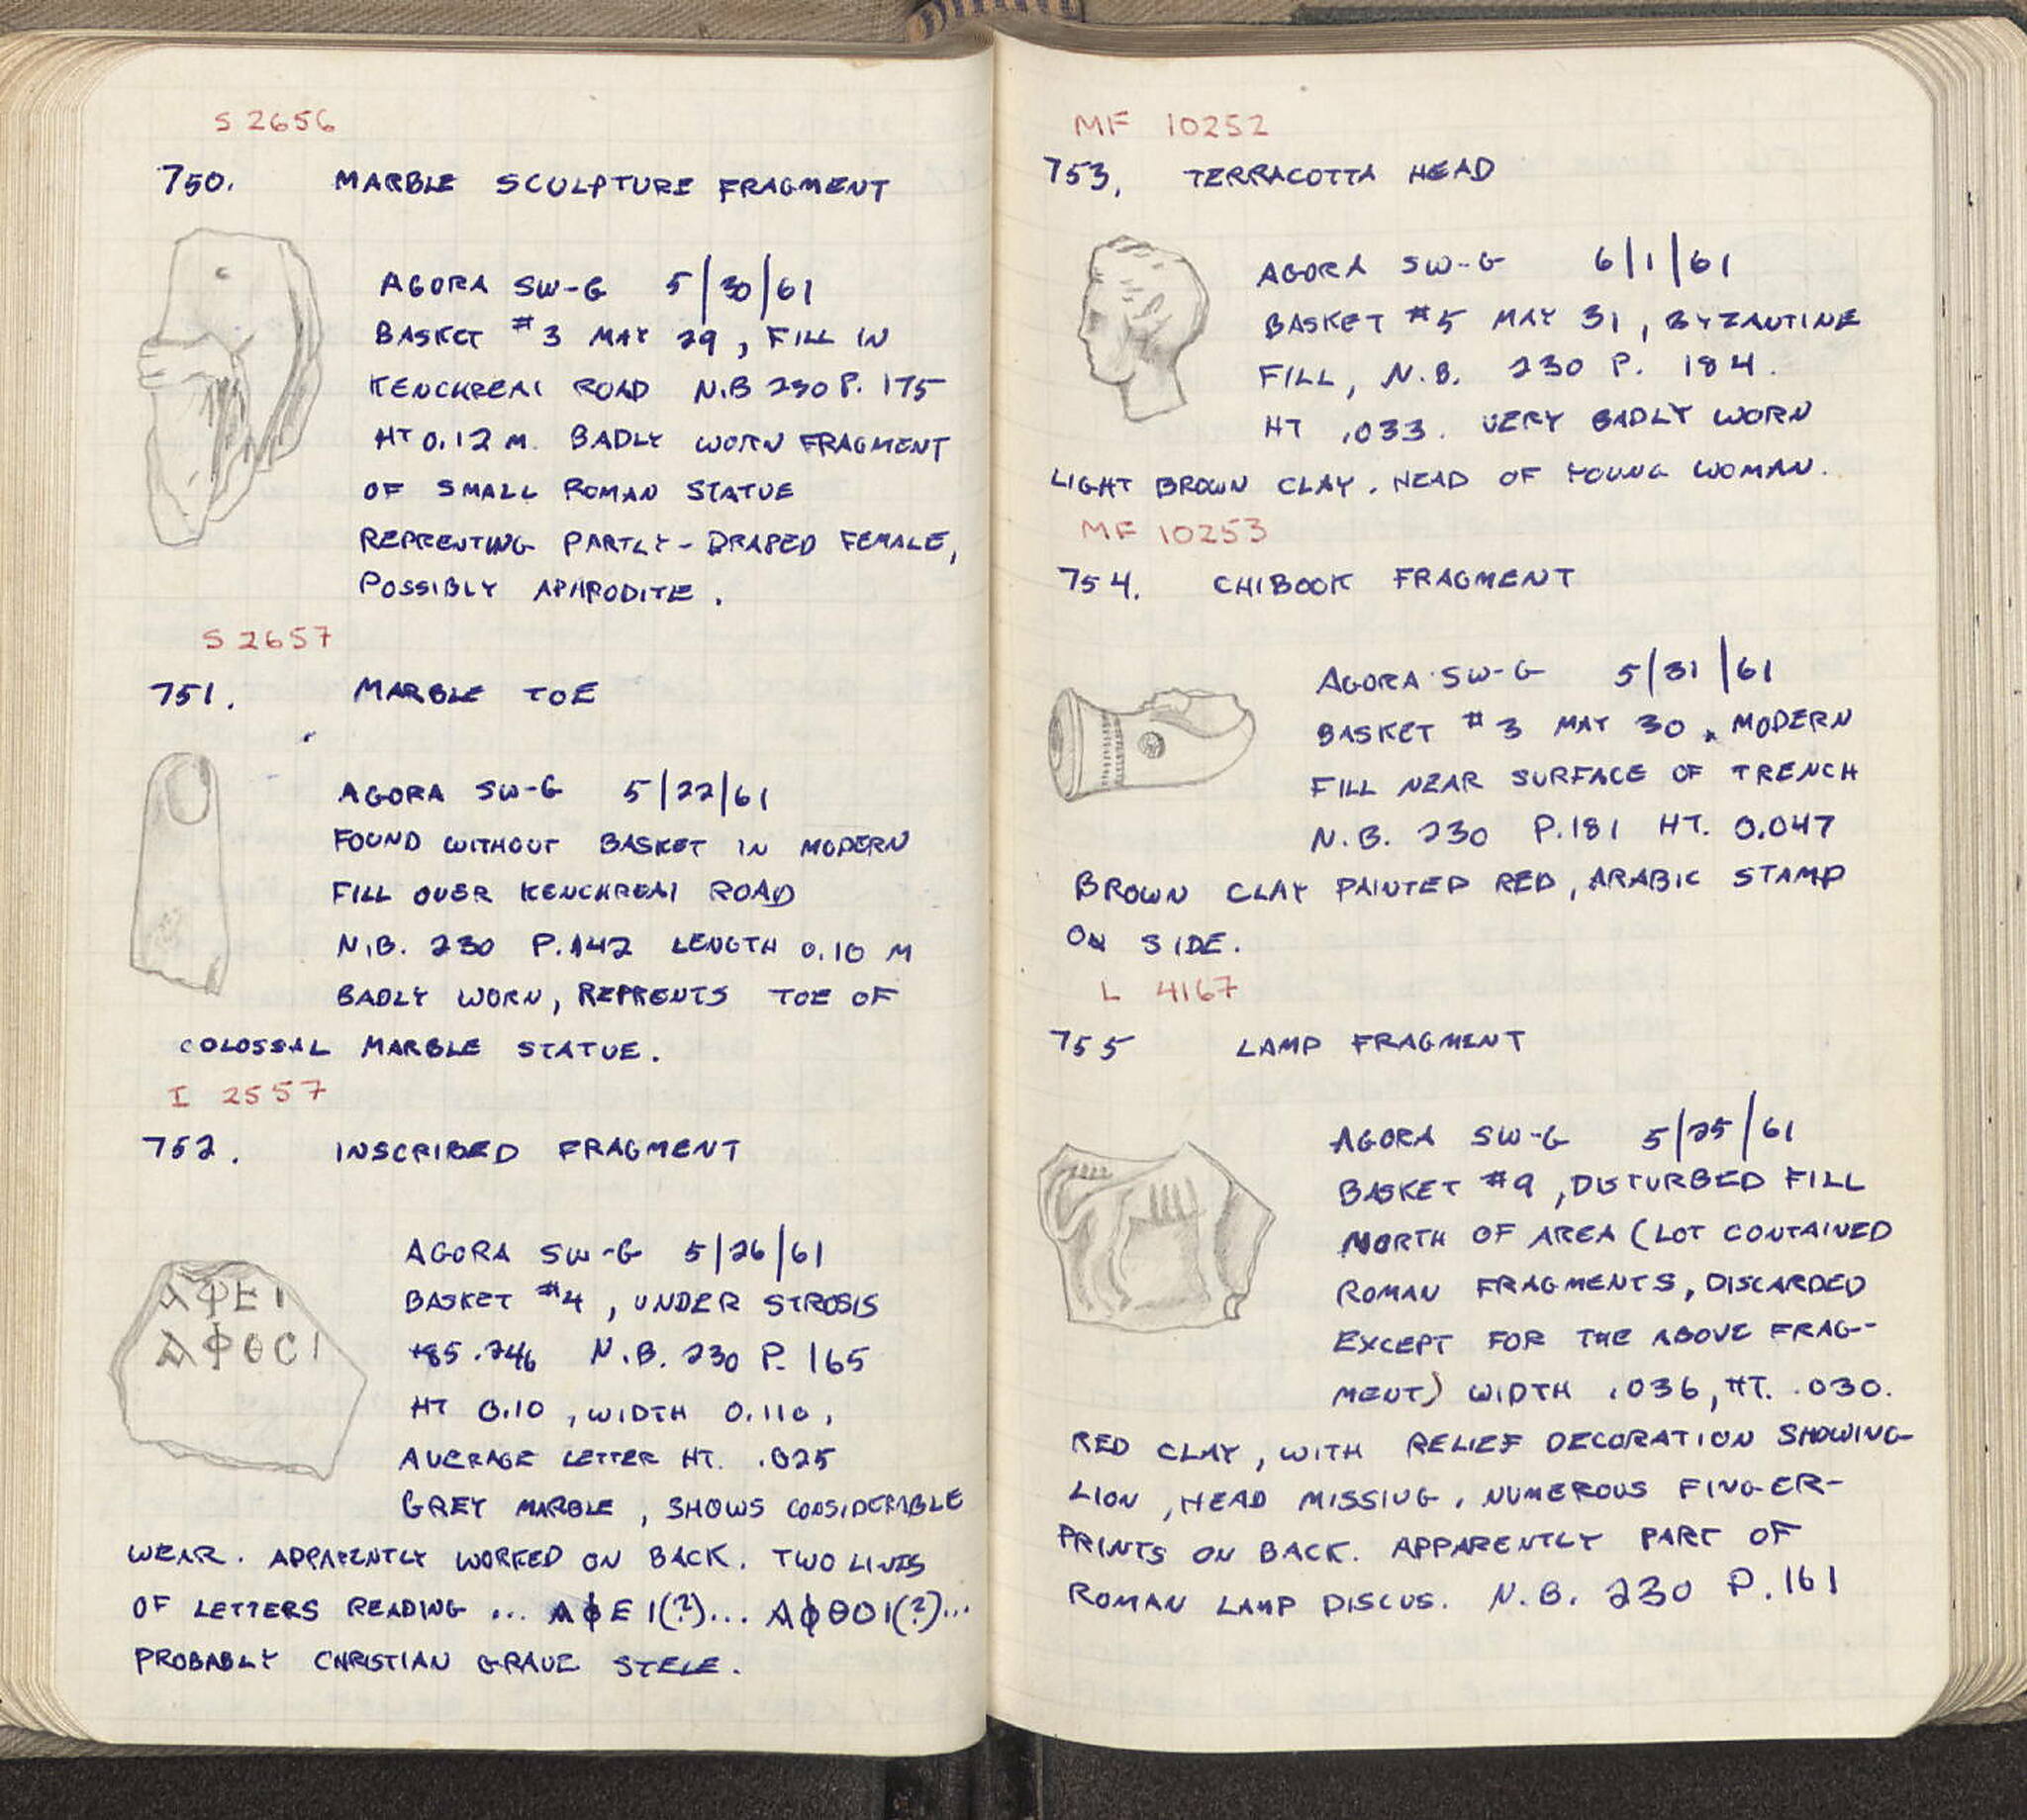 S 2656
750. MARBLE SCULPTURE FRAGMENT
AGORA SW-G 5/30/61
BASKET #3 MAY 29, FILL IN
KENCHREAI ROAD N.B 230 P. 175
HT 0.12 M. BADLY WORN FRAGMENT
OF SMALL ROMAN STATUE
REPRENTING PARTLY-DRAPED FEMALE,
POSSIBLY APHRODITE.
S 2657
751. MARBLE TOE
AGORA SW-G 5/22/61
FOUND WITHOUT BASKET IN MODERN
FILL OVER KENCHREAI ROAD
N.B. 230 P.142 LENGTH 0.10 M
BADLY WORN, REPRENTS TOE OF
COLOSSAL MARBLE STATUE.
I 2557
752. INSCRIBED FRAGMENT
ΑΦΕΙ
ΑΦΘCΙ
AGORA SW-G 5/26/61
BASKET #4, UNDER STROSIS
+85.246 N.B. 230 P. 165
HT 0.10, WIDTH 0.110,
AVERAGE LETTER HT. .025
GREY MARBLE, SHOWS CONSIDERABLE
WEAR. APPARENTLY WORKED ON BACK. TWO LINES
OF LETTERS READING ... ΑΦΕΙ(?)... ΑΦΘΟΙ(?)...
PROBABLY CHRISTIAN GRAVE STELE.
MF 10252
753. TERRACOTTA HEAD
AGORA SW-G 6/1/61
BASKET #5 MAY 31, BYZANTINE
FILL, N.B. 230 P. 184.
HT .033. VERY BADLY WORN
LIGHT BROWN CLAY. HEAD OF YOUNG WOMAN.
MF 10253
754. CHIBOOK FRAGMENT
AGORA SW-G 5/31/61
BASKET #3 MAY 30. MODERN
FILL NEAR SURFACE OF TRENCH
N.B. 230 P.181 HT. 0.047
BROWN CLAY PAINTED RED, ARABIC STAMP
ON SIDE.
L 4167
755 LAMP FRAGMENT
AGORA SW-G 5/25/61
BASKET #9, DISTURBED FILL
NORTH OF AREA (LOT CONTAINED
ROMAN FRAGMENTS, DISCARDED
EXCEPT FOR THE ABOVE FRAG-
MENT) WIDTH .036, HT. .030.
RED CLAY, WITH RELIEF DECORATION SHOWING
LION, HEAD MISSING. NUMEROUS FINGER-
PRINTS ON BACK. APPARENTLY PART OF
ROMAN LAMP DISCUS. N.B. 230 P.161